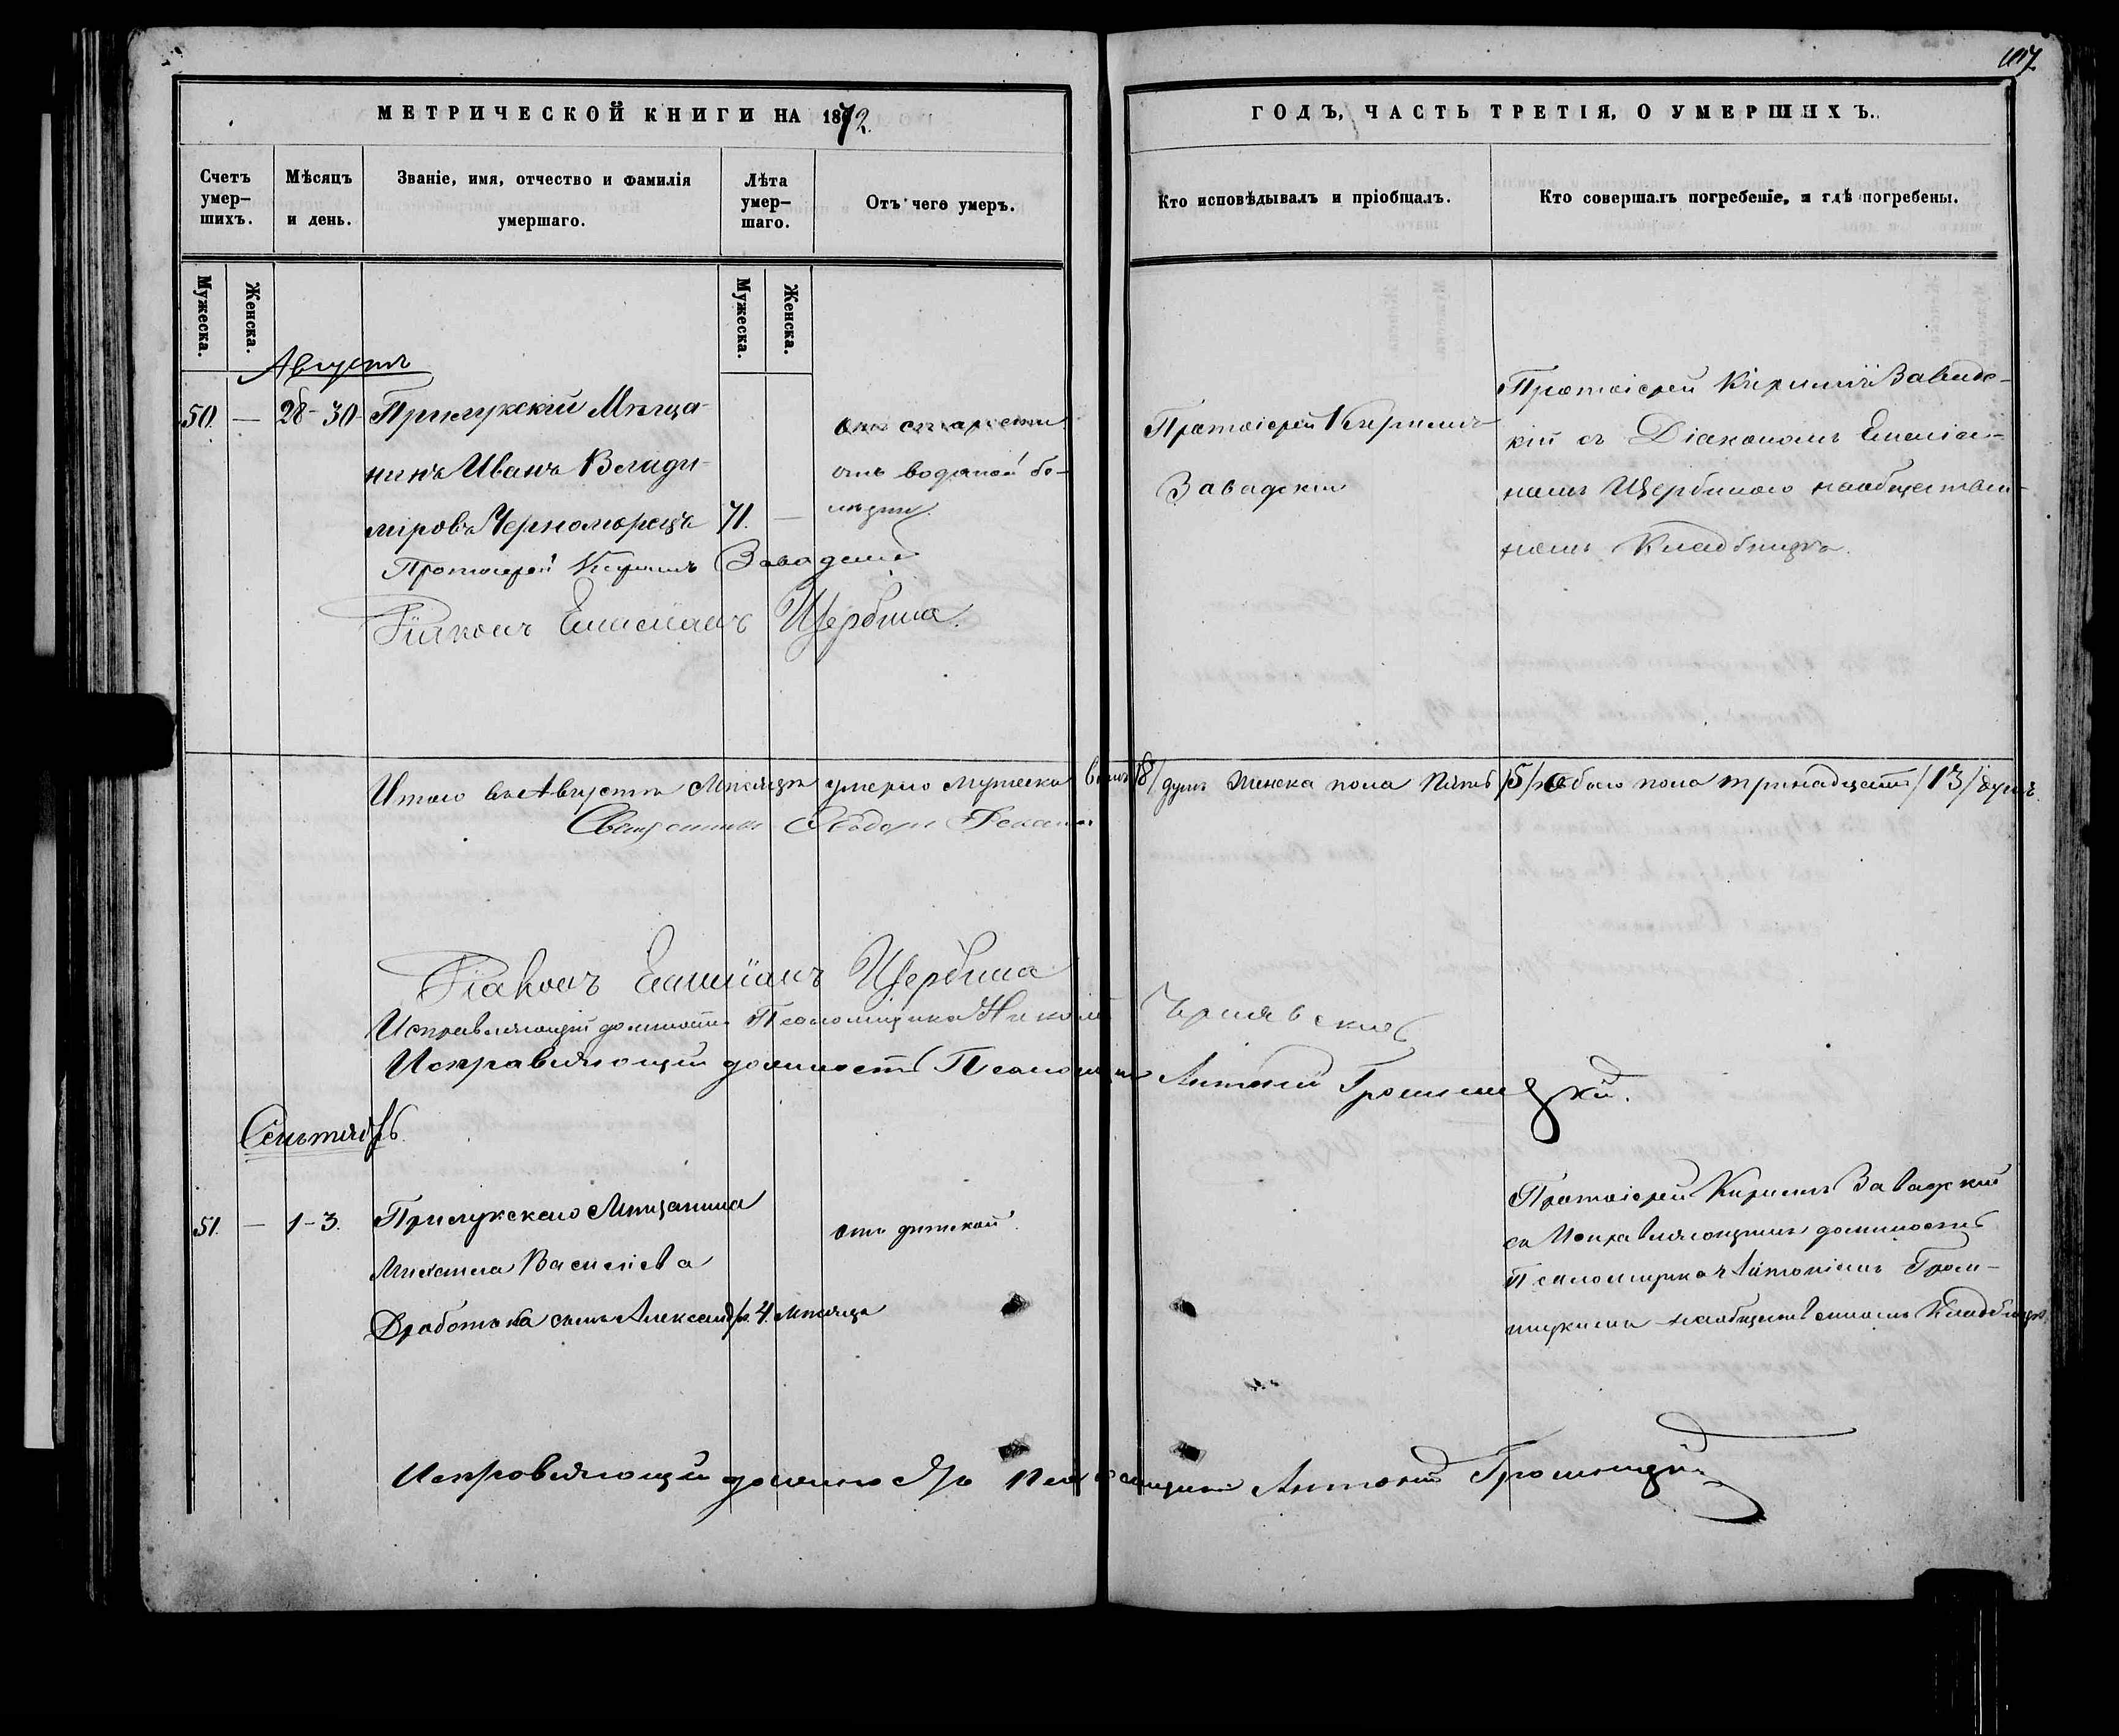 117
МЕТРИЧЕСКОЙ КНИГИ НА 1872.
ГОДЪ, ЧАСТЬ ТРЕТІЯ, О УМЕРШИХЪ.
Счетъ умер-
шихъ.
Мѣсяцъ
и день.
Званіе, имя, отчество и фамилія
умершаго.
Лѣта
умер-
шаго.
Отъ чего умеръ.
Кто исповѣдывалъ и пріобщалъ.
Кто совершалъ погребеніе, и гдѣ погребены.
Мужеска.
Женска.
Мужеска.
Женска.
Августъ
50. — 28-30 Прилукскій Мѣща-
нинъ Иванъ Влади-
міровъ Черноморецъ 71. —
отъ старости
отъ водяной бо-
лѣзни.
Протоіерей Кириллъ
Завадскій
Протоіерей Кириллъ Завадс-
кій съ Діакономъ Емиліа-
номъ Щербиною наобществен-
номъ Кладбищѣ.
Протоіерей Кириллъ Завадскій
Діаконъ Емиліанъ Щербина.
Итого въ Августѣ Мѣсяцѣ умерло мужеска восмь /8/ душъ женска пола пять /5/ обоего пола тринадцать /13/ душъ.
Священникъ Ѳеодоръ
Діаконъ Емиліанъ Щербина
Исправляющій должность Псаломщика Николай Чернявскій
Исправляющій должность Псаломщика Антоній Громницкій.
Сентябрь.
51. — 1-3. Прилукскаго Мѣщанина
Михаила Василіева
сынъ Александръ 4. мѣсяца
отъ дѣтской.
Протоіерей Кириллъ Завадскій
съ Исправляющимъ должность
Псаломщика Антоніемъ Гром-
ницкимъ наобщественномъ Кладбищѣ.
Исправляющій должность Псаломщика Антоній Громницкій